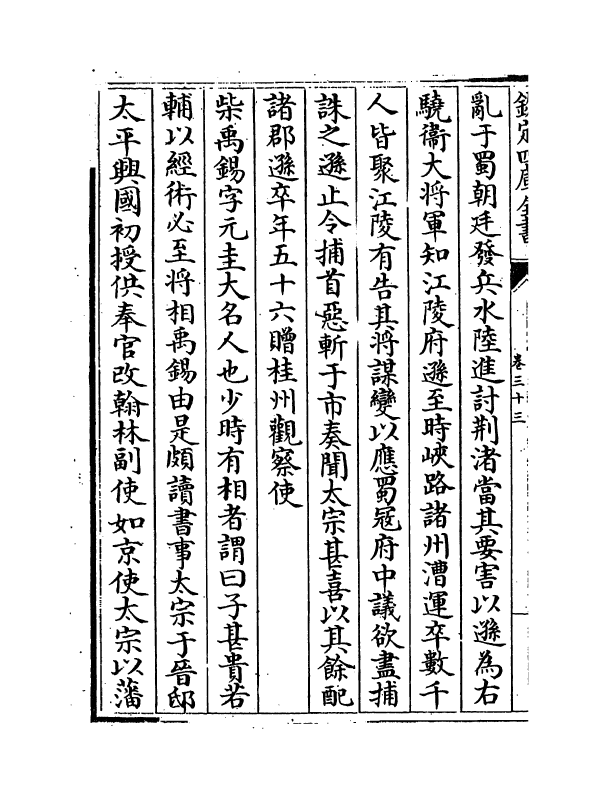 欽定四庫全書
卷三十三
亂于蜀朝廷發兵水陸進討荆渚當其要害以遜為右
驍衞大将軍知江陵府遜至時峽路諸州漕運卒數千
人皆聚江陵有告其將謀變以應蜀冦府中議欲盡捕
誅之遜止令捕首惡斬于市奏聞太宗甚喜以其餘配
諸郡遜卒年五十六贈桂州觀察使
柴禹錫字元圭大名人也少時有相者謂曰子甚貴若
輔以經術必至将相禹錫由是頗讀書事太宗于晉邸
太平興國初授供奉官改翰林副使如京使太宗以藩